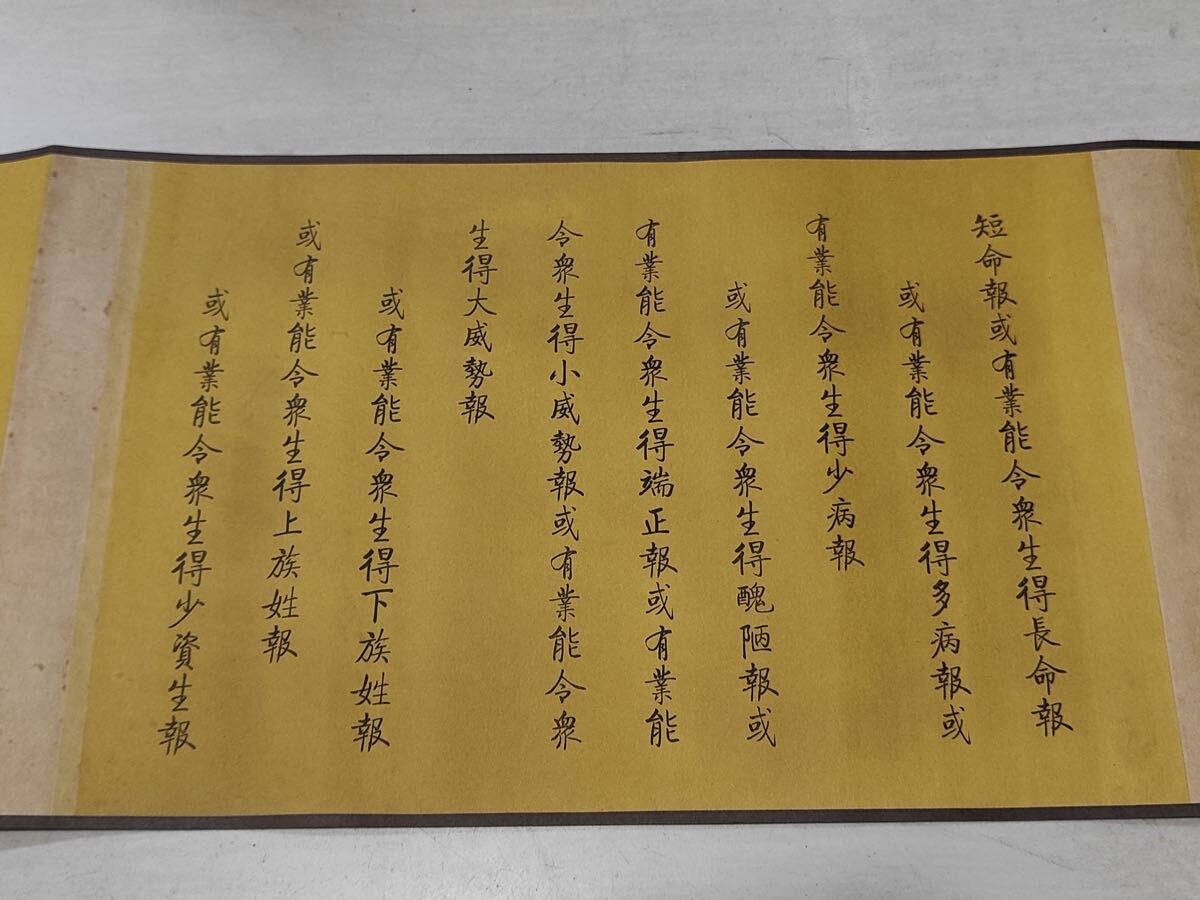 短命報或有業能令衆生得長命報
或有業能令衆生得多病報或
有業能令衆生得少病報
或有業能令衆生得醜陋報或
有業能令衆生得端正報或有業能
令衆生得小威勢報或有業能令衆
生得大威勢報
或有業能令衆生得下族姓報
或有業能令衆生得上族姓報
或有業能令衆生得少資生報